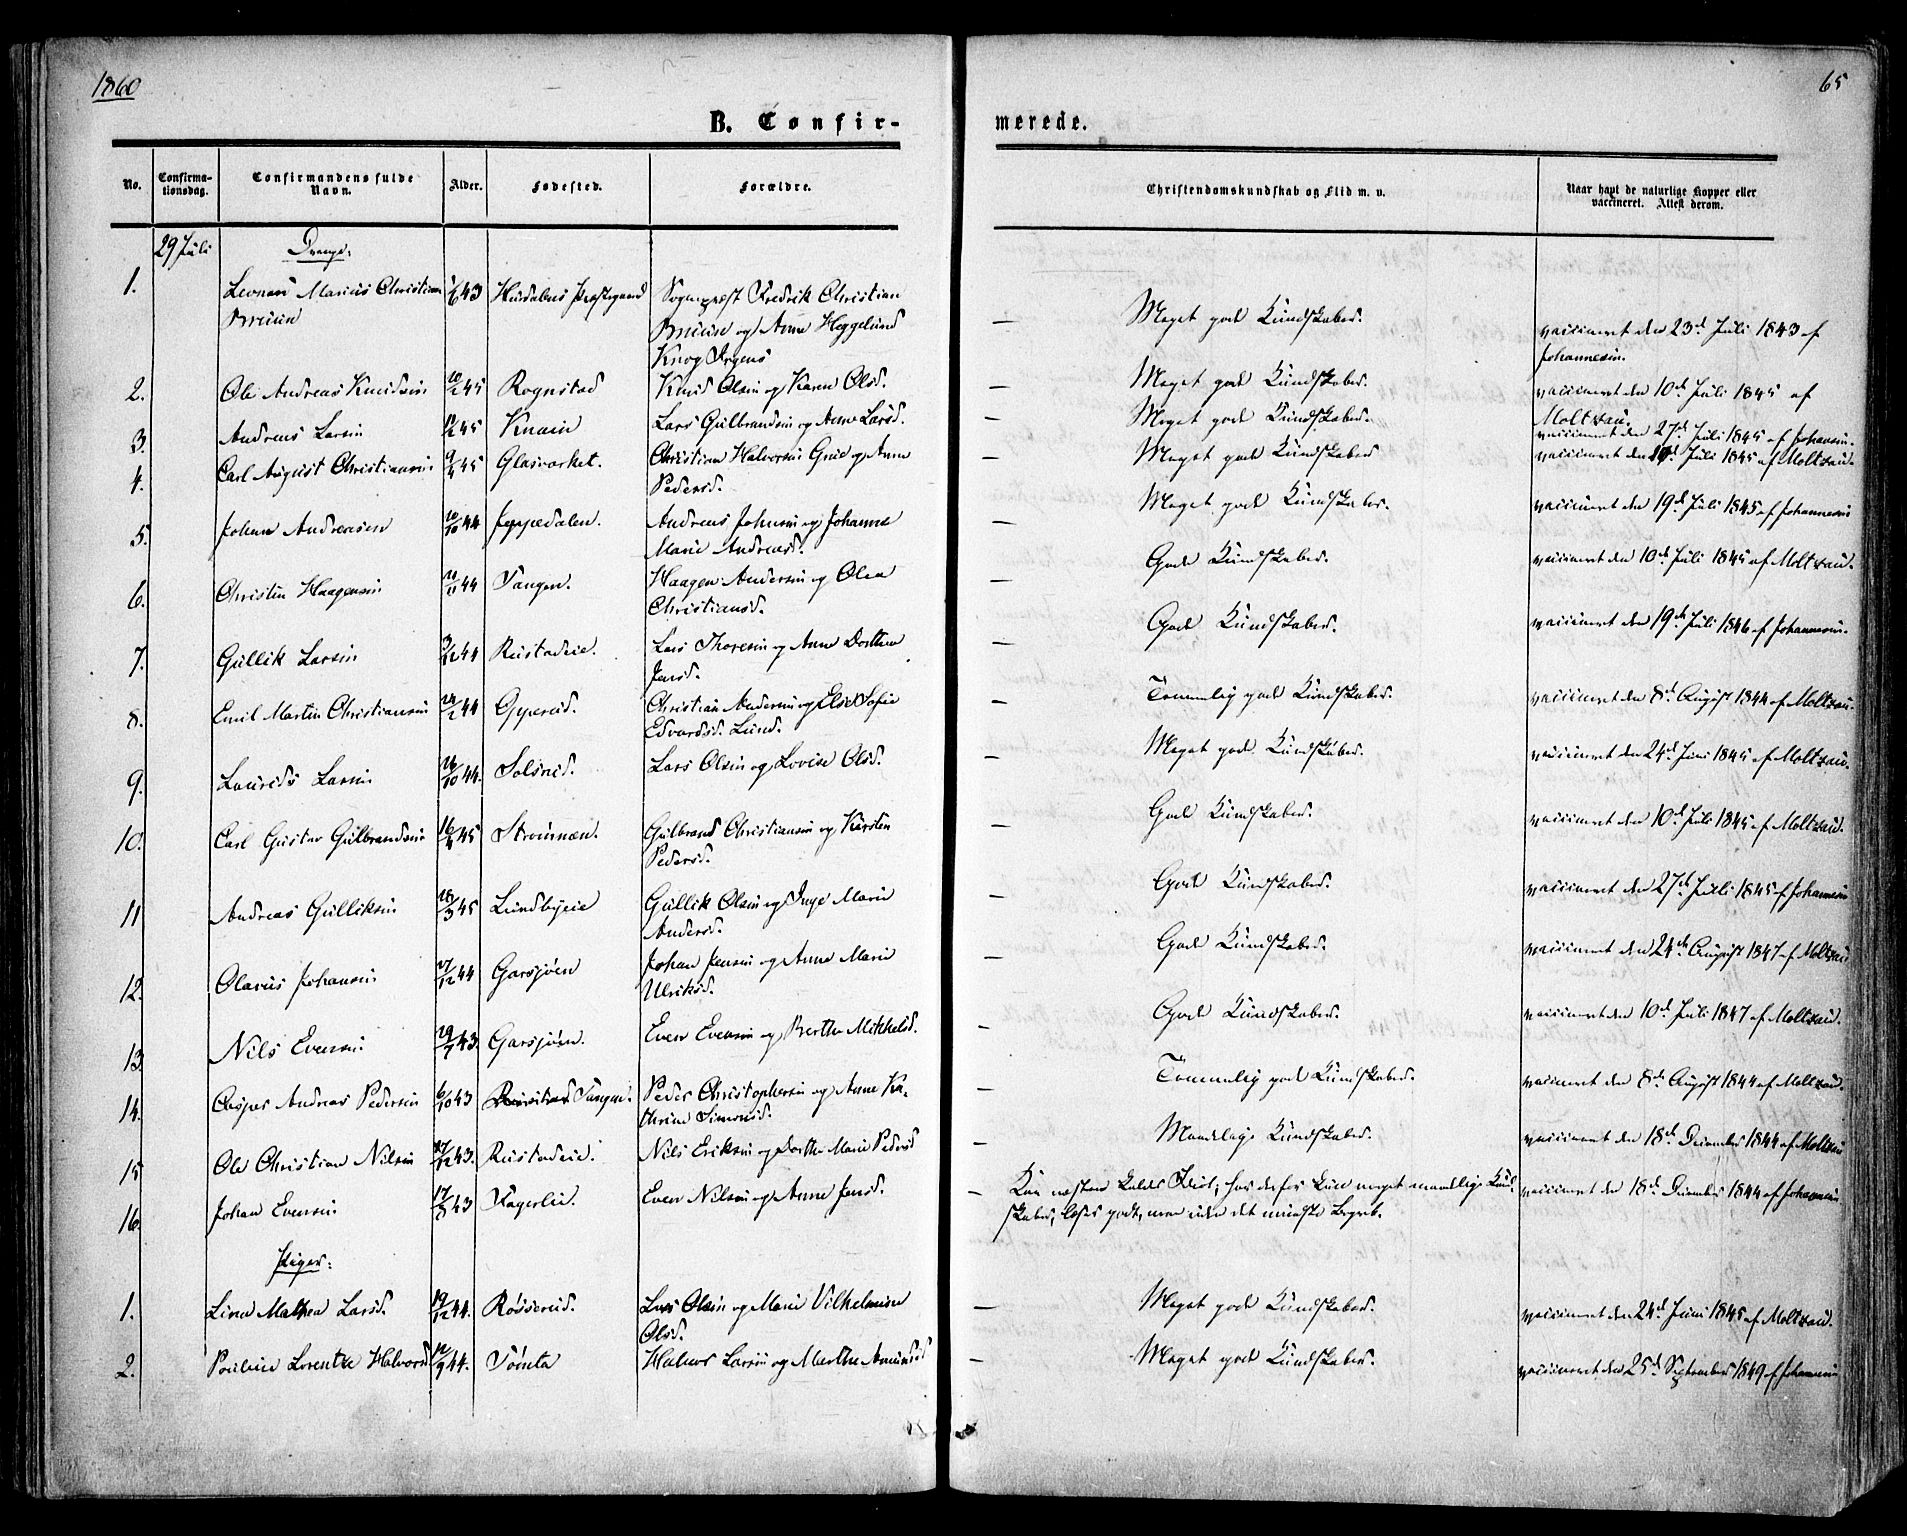 1860
65
B. Confir-
merede.
No.
Confirma-
tionsdag.
Confirmandens fulde
Navn.
Alder.
Fødested.
Forældre.
Christendomskundskab og Flid m. v.
Naar havt de naturlige Kopper eller
vaccineret. Attest derom.
29 Juli
Drenge:
1. Marius Christian 43 Hurdalens Præstegaard Sognepræst Fredrik Christian
Bruun
Bruun og Anne Heggelund
— Meget gode Kundskaber. vaccineret den 23d Juli 1843 af
Johannesen.
2. Ole Andreas Knudsen 45 Rognstad Knud Olsen og Karen Olsd. — Meget gode Kundskaber. vaccineret den 10de Juli 1845 af
Moltzau.
3. Andreas Larsen 45 Knain Lars Gulbrandsen og Anne Larsd. — Meget gode Kundskaber. vaccineret den 27de Juli 1845 af Johansen.
4. Carl August Christiansen 9/5 45 Glasværket. Christian Halvorsen og Anne
Pedersd.
— Meget gode Kundskaber vaccineret den Juli 1845 af Moltzau.
5. Johan Andreasen 44 Jeppedalen. Andreas Johnsen og Johanne
Marie Andreasd.
— Meget gode Kundskaber. vaccineret den 19de Juli 1845 af Johannesen
6. Christen Haagensen 44 Tangen. Haagen Andersen og Olea
Christiansd.
— Gode Kundskaber. vaccineret den 10de Juli 1845 af Moltzau.
7. Gullik Larsen 3/12 44 Rustadeie. Lars Thoresen og Anne Dorthea
Jensd.
— Gode Kundskaber. vaccineret den 19de Juli 1846 af Johannesen.
8. Emil Martin Christiansen 44 Oppereid. Christian Andersen og Else Sofie
Edvardsd. Lund.
— Temmelig gode Kundskaber. vaccineret den 8de August 1844 af Moltzau.
9. Laurids Larsen 44. Solsred. Lars Olsen og Lovise Olsd. — Meget gode Kundskaber. vaccineret den 24de Juni 1845 af Moltzau.
10. Carl Gustav Gulbrandsen 45 Strømnæn. Gulbrand Christiansen og Karsten
Pedersd.
— Gode Kundskaber. vaccineret den 10de Juli 1845 af Moltzau.
11 Andreas Gulliksen 45 Lundbyeie Gullik Olsen og Inge Marie
Andersd.
— Gode Kundskaber. vaccineret den 27de Juli 1845 af Johannesen
12. Olavus Johansen 44 Garsjøen Johan Jensen og Anne Marie
Ulriksd.
— Gode Kundskaber. vaccineret den 24de August 1847 af Moltzau
13. Nils Evensen 29/7 43. Garsjøen. Even Evensen og Berthe Mikkelsd. — Gode Kundskaber. vaccineret den 10de Juli 1847 af Moltzau.
14. Casper Andreas Pedersen 6/10 43 Tangen. Peder Christophersen og Anne Ka-
thrine Simonsd.
— Temmelig gode Kundskaber. vaccineret den 8de August 1844 af Moltzau.
15 Ole Christian Nilsen 43. Rustadeie. Nils Eriksen og Dorthe Marie Pedersd — Maadelige Kundskaber. vaccineret den 18de December 1844 af Moltzau
16. Johan Evensen 17/8 43 Fagerlie. Even Nilsen og Anne Jensd. — Kan næsten kaldes Idiot; har derfor kun meget maadelige Kund-
skaber; læser godt, men uden det mindste Begreb.
vaccineret den 18de December 1844 af Johannesen
Piger:
1. Lina Mathea Larsd. 19/12 44. Røssereid. Lars Olsen og Marie Vilhelmine
Olsd.
— Meget gode Kundskaber. vaccineret den 24de Juni 1845 af Moltzau.
2. Pauline Lorentze Halvorsd 44. Tømta Halvor Larsen og Marthe Amundsd — Meget gode Kundskaber. vaccineret den 25de September 1849 af Johannesen